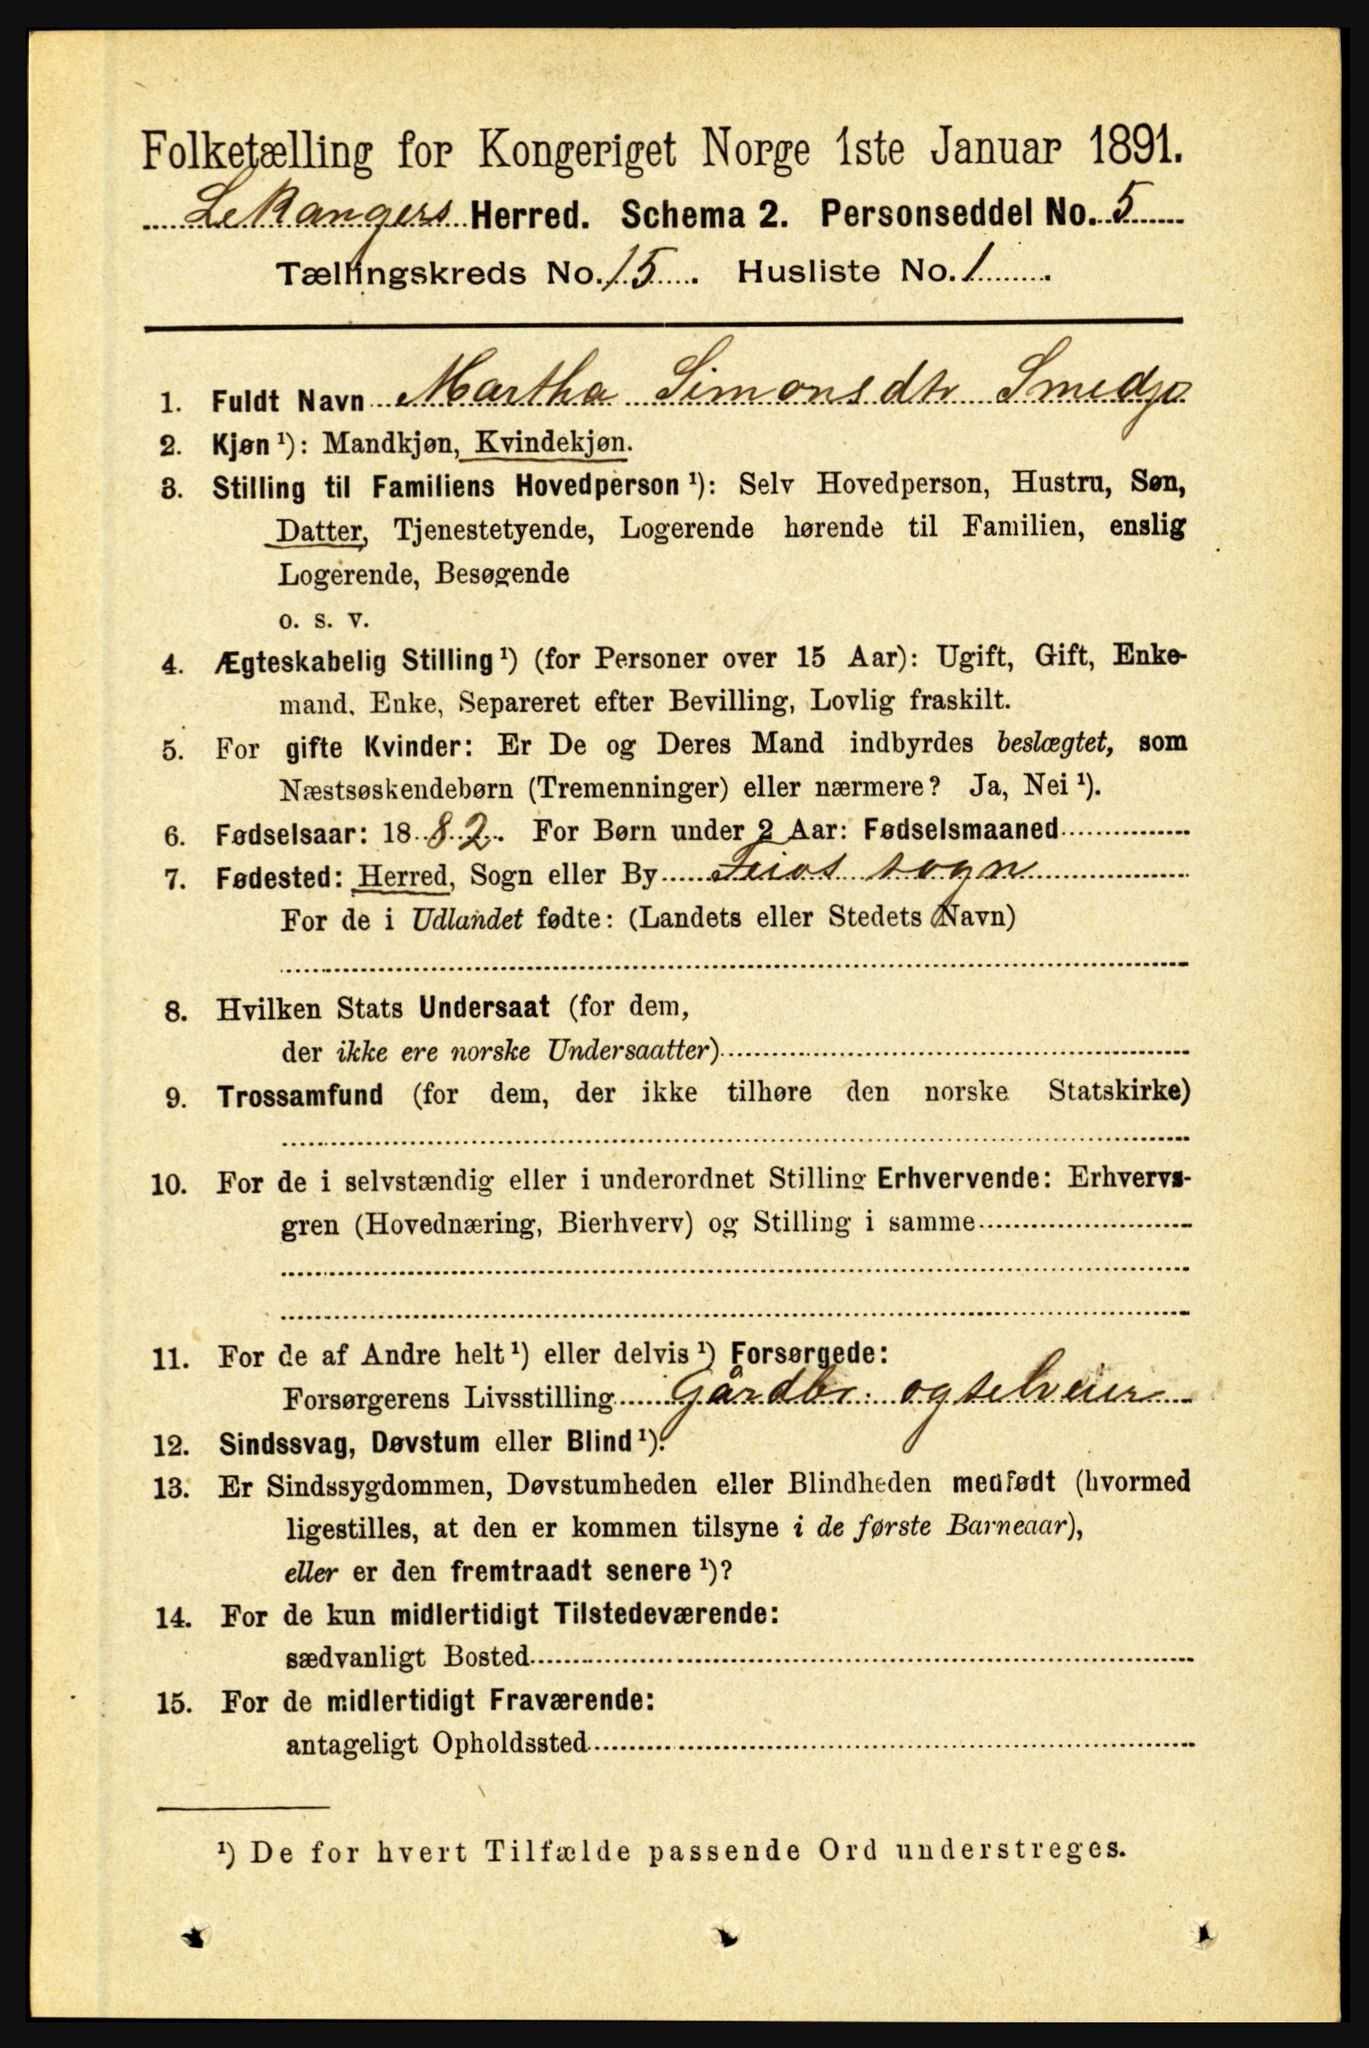 Folketælling for Kongeriget Norge 1ste Januar 1891.
Lekangers Herred. Schema 2. Personseddel No. 5
Tællingskreds No. 15. Husliste No. 1
1. Fuldt Navn Martha Simonsdtr Smedjo
2. Kjøn ¹): Mandkjøn, Kvindekjøn.
3. Stilling til Familiens Hovedperson ¹): Selv Hovedperson, Hustru, Søn,
Datter, Tjenestetyende, Logerende hørende til Familien, enslig
Logerende, Besøgende
o. s. v.
4. Ægteskabelig Stilling ¹) (for Personer over 15 Aar): Ugift, Gift, Enke-
mand, Enke, Separeret efter Bevilling, Lovlig fraskilt.
5. For gifte Kvinder: Er De og Deres Mand indbyrdes beslægtet, som
Næstsøskendebørn (Tremenninger) eller nærmere? Ja, Nei ¹).
6. Fødselsaar: 1882. For Børn under 2 Aar: Fødselsmaaned
7. Fødested: Herred, Sogn eller By Feios sogn
For de i Udlandet fødte: (Landets eller Stedets Navn)
8. Hvilken Stats Undersaat (for dem,
der ikke ere norske Undersaatter)
9. Trossamfund (for dem, der ikke tilhøre den norske Statskirke)
10. For de i selvstændig eller i underordnet Stilling Erhvervende: Erhvervs-
gren (Hovednæring, Bierhverv) og Stilling i samme
11. For de af Andre helt ¹) eller delvis ¹) Forsørgede:
Forsørgerens Livsstilling Gårdbr. og selveier
12. Sindssvag, Døvstum eller Blind ¹).
13. Er Sindssygdommen, Døvstumheden eller Blindheden medfødt (hvormed
ligestilles, at den er kommen tilsyne i de første Barneaar),
eller er den fremtraadt senere ¹)?
14. For de kun midlertidigt Tilstedeværende:
sædvanligt Bosted
15. For de midlertidigt Fraværende:
antageligt Opholdssted
¹) De for hvert Tilfælde passende Ord understreges.